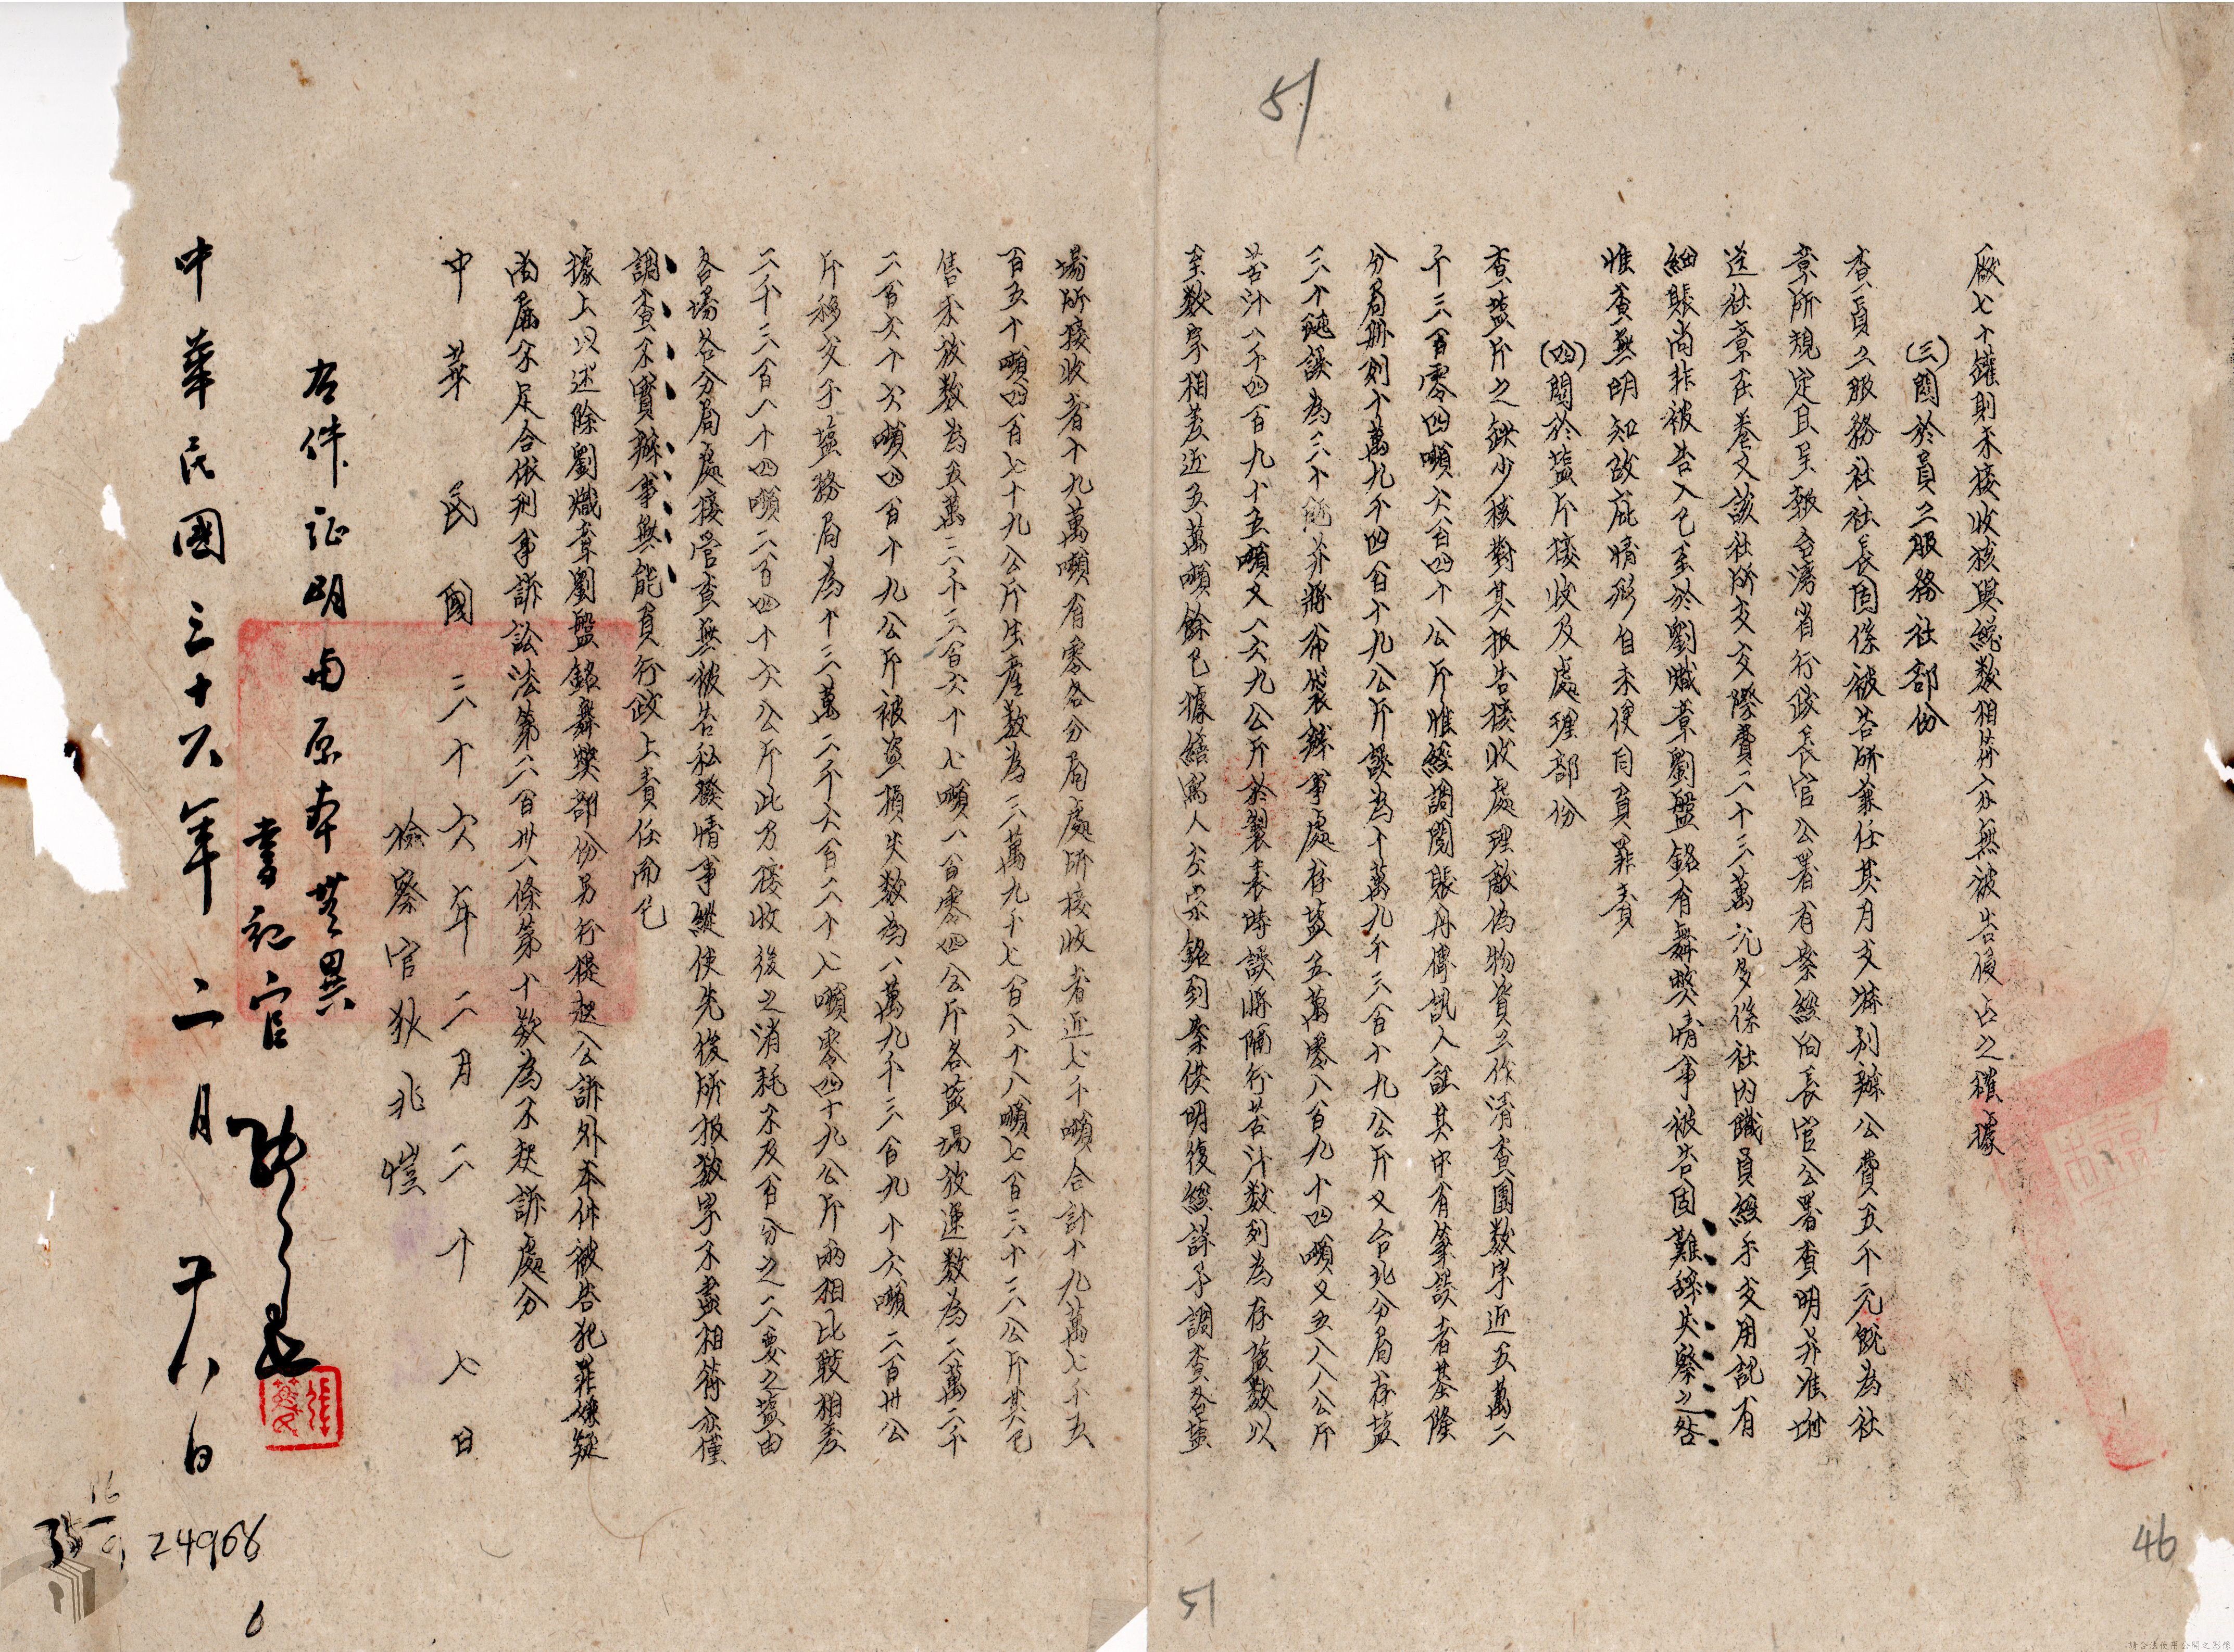 廠七十罐則未接收核與總數相符亦無被告侵占之確據
(三)關於員工服務社部份
查員工服務社社長固係被告所兼任其月支特別辦公費五千元既為社
章所規定且呈報台灣省行政長官公署有案經向長官公署查明并准坿
送社章在卷又該社所支交際費二十三萬元多係社內職員經手支用記有
細賬尚非被告入己至於劉幟章劉盤銘有舞弊情事被告固難辭失察之咎
惟查無明知故庇情形自未便同負罪責
(四)關於鹽斤接收及處理部份
查鹽斤之缺少核對其报告接收處理敵偽物資工作清查團數字近五萬二
千三百零四噸六百四十公斤惟經調閱賬册傳訊人証其中有筆誤者基隆
分局册列十萬九千四百十九公斤誤為十萬九千三百十九公斤又台北分局存鹽
三十包誤為三十包并將布袋辦事處存鹽五萬零八百九十四噸又五八八公斤
苦汁一千四百九十五噸又一六九公斤於製表時誤將隔行苦汁數列為存鹽數以
至數字相差近五萬噸餘已據繕寫人 銘到案供明復經詳予調查各鹽
場所接收者十九萬噸有零各分局處所接收者近七千噸合計十九萬七千五
百五十噸四百七十九公斤生產數為三萬九千七百八十八噸七百三十三公斤其已
售未放數為五萬三千三百六十七噸一百零四公斤各鹽場放運數為二萬二千
二百六十六噸四百十九公斤被盜損失數為一萬九千三百九十六噸二百卅公
斤移交于鹽務局為十三萬二千六百二十七噸零四十九公斤兩相比較相差
二千三百一十四噸二百四十六公斤此乃接收後之消耗不及百分之二要之鹽由
各場各分局處接管查無被告私發情事縱使先後所报數字不盡相符亦僅
調查不實辦事無能負行政上責任而已
據上以述除劉幟章劉盤銘舞弊部份另行提起公訴外本件被告犯罪嫌疑
尚屬不足合依刑事訴訟法第二百卅一條第十款為不起訴處分
中華民國三十六年二月二十七日
檢察官狄兆愷
右件証明與原本無異
書記官
中華民國三十六年二月廿八日
51
46
51
24968
6
請合法使用公開之影像